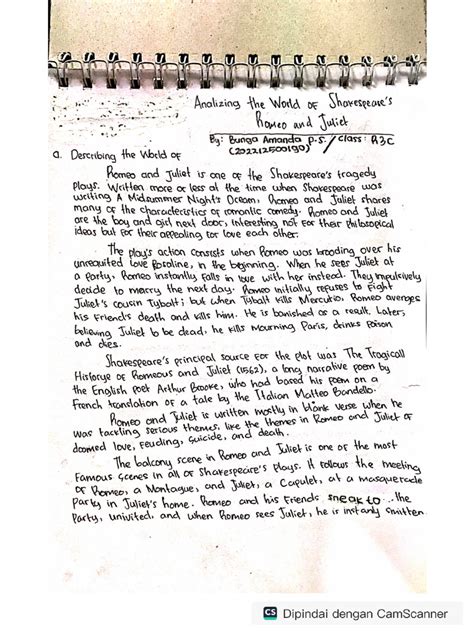 Analizing the World of Shakespeare's
Romeo and Juliet
By: Bunga Amanda P.S. / class: R3C
(202212500190)
a. Describing the World of
Romeo and Juliet is one of the Shakespeare's tragedy
plays. Written more or less at the time when Shakespeare was
writing A Midsummer Night's Dream, Romeo and Juliet shares
many of the characteristics of romantic comedy. Romeo and Juliet
are the boy and girl next door, interesting not for their philosophical
ideas but for their appealing for love each other.
The play's action consists when Romeo was brooding over his
unrequited love Rosaline, in the beginning. When he sees Juliet at
a party, Romeo instantly falls in love with her instead. They impulsively
decide to marry the next day. Romeo initially refuses to fight
Juliet's cousin Tybolt; but when Tybalt kills Mercutio, Romeo avenges
his friend's death and kills him. He is banished as a result. Later,
believing Juliet to be dead, he kills mourning Paris, drinks poison
and dies.
Shakespeare's principal source for the plot was The Tragicall
Historye of Romeous and Juliet (1562), a long narrative poem by
the English poet Arthur Brooke, who had based his poem on a
French translation of a tale by the Italian Matteo Bandello.
Romeo and Juliet is written mostly in blank verse when he
was tackling serious themes, like the themes in Romeo and Juliet of
doomed love, feuding, suicide, and death.
The balcony scene in Romeo and Juliet is one of the most
famous scenes in all of Shakespeare's plays. It follows the meeting
of Romeo, a Montague, and Juliet, a Capulet, at a masquerade
party in Juliet's home. Romeo and his friends sneak to ... the
Party, univited, and when Romeo sees Juliet, he is instanly smitten
CS Dipindai dengan CamScanner